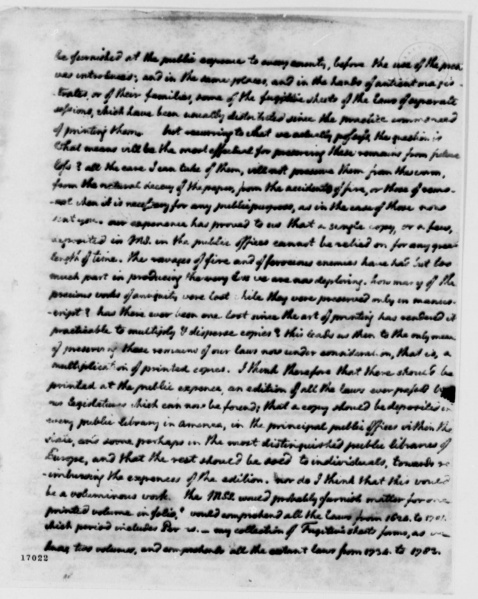 be furnished at the public expence to every county, before the use of the press
was introduced; and in the same places, and in the hands of antient magis-
trates, or of their families, some of the fugitive sheets of the laws of separate
sessions, which have been usually distributed since the practice commenced
of printing them. but recurring to what we actually possess, the question is
what means will be the most effectual for preserving these remains from future
loss? all the care I can take of them, will not preserve them from the worm,
from the natural decay of the paper, from the accidents of fire, or those of remo-
val when it is necessary for any public purposes, as in the case of those now
sent you. our experience has proved to us that a single copy, or a few,
deposited in MS. in the public offices cannot be relied on for any great
length of time. the ravages of fire and of ferocious enemies have had but too
much part in producing the very loss we are now deploring. how many of the
precious works of antiquity were lost while they were preserved only in manus-
cript? has there ever been one lost since the art of printing has rendered it
practicable to multiply & disperse copies? this leads us then to the only means
of preserving these remains of our laws now under consideration, that is, a
multiplication of printed copies. I think therefore that there should be
printed at the public expence, an edition of all the laws ever passed by
our legislatures which can now be found; that a copy should be deposited in
every public library in America, in the principal public offices within the
state, and some perhaps in the most distinguished public libraries of
Europe, and that the rest should be sold to individuals, towards re-
imbursing the expences of the edition. nor do I think that this would
be a voluminous work. the MSS. would probably furnish matter for one
printed volume in folio, & would comprehend all the laws from 1624. to 1701.
which period includes Purvis. my collection of Fugitive sheets forms, as we
know, two volumes, and comprehends all the extant laws from 1734. to 1783.
17022